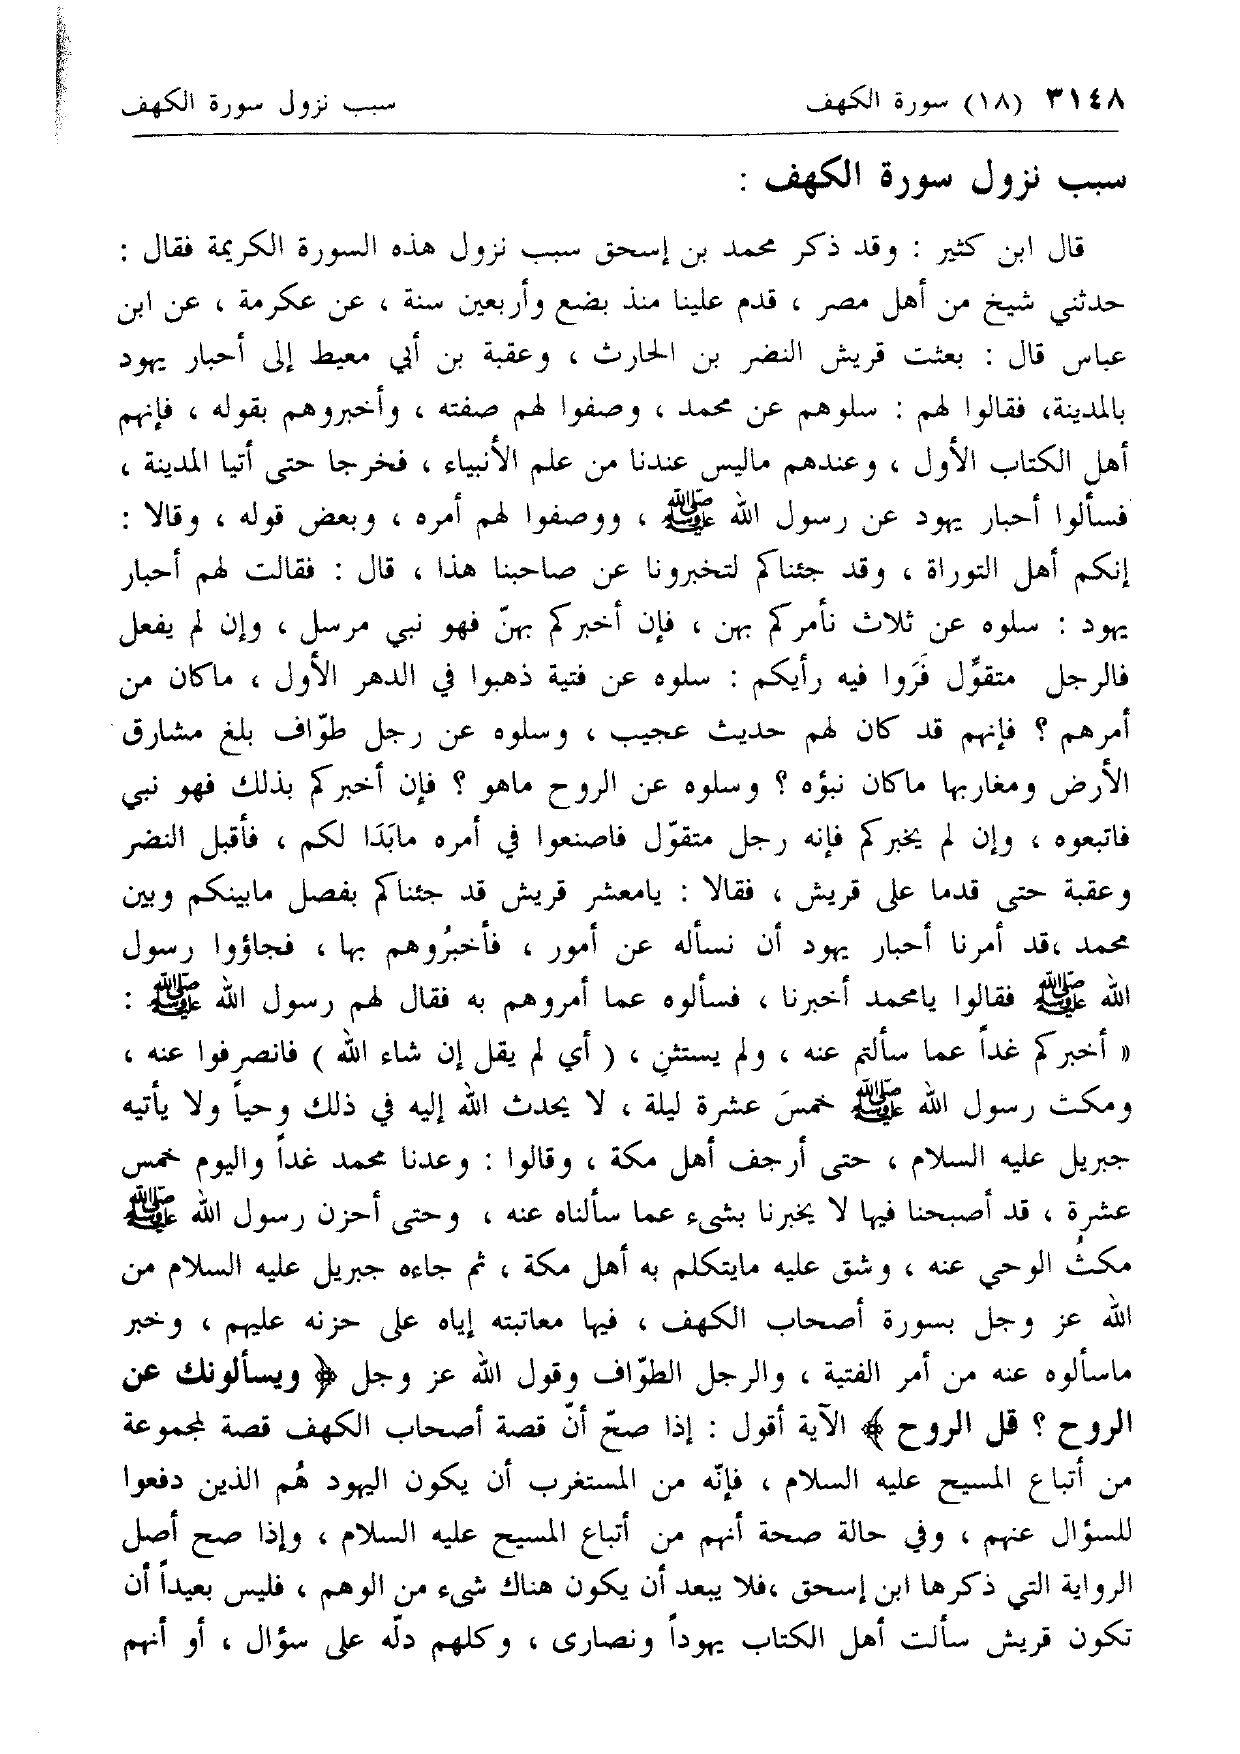 ٣١٤٨ (١٨) سورة الكهف سبب نزول سورة الكهف
سبب نزول سورة الكهف :
قال ابن كثير : وقد ذكر محمد بن إسحق سبب نزول هذه السورة الكريمة فقال :
حدثني شيخ من أهل مصر ، قدم علينا منذ بضع وأربعين سنة ، عن عكرمة ، عن ابن
عباس قال : بعثت قريش النضر بن الحارث ، وعقبة بن أبي معيط إلى أحبار يهود
بالمدينة، فقالوا لهم : سلوهم عن محمد ، وصفوا لهم صفته ، وأخبروهم بقوله ، فإنهم
أهل الكتاب الأول ، وعندهم ماليس عندنا من علم الأنبياء ، فخرجا حتى أتيا المدينة ،
فسألوا أحبار يهود عن رسول الله ﷺ ، ووصفوا لهم أمره ، وبعض قوله ، وقالا :
إنكم أهل التوراة ، وقد جئناكم لتخبرونا عن صاحبنا هذا ، قال : فقالت لهم أحبار
يهود : سلوه عن ثلاث نأمركم بهن ، فإن أخبركم بهنّ فهو نبي مرسل ، وإن لم يفعل
فالرجل متقوِّل فَرَوا فيه رأيكم : سلوه عن فتية ذهبوا في الدهر الأول ، ماكان من
أمرهم ؟ فإنهم قد كان لهم حديث عجيب ، وسلوه عن رجل طوّاف بلغ مشارق
الأرض ومغاربها ماكان نبؤه ؟ وسلوه عن الروح ماهو ؟ فإن أخبركم بذلك فهو نبي
فاتبعوه ، وإن لم يخبركم فإنه رجل متقوّل فاصنعوا في أمره مابَدَا لكم ، فأقبل النضر
وعقبة حتى قدما على قريش ، فقالا : يامعشر قريش قد جئناكم بفصل مابينكم وبين
محمد ،قد أمرنا أحبار يهود أن نسأله عن أمور ، فأخبرُوهم بها ، فجاؤوا رسول
الله ﷺ فقالوا يامحمد أخبرنا ، فسألوه عما أمروهم به فقال لهم رسول الله ﷺ :
« أخبركم غداً عما سألتم عنه ، ولم يستثنِ ، ( أي لم يقل إن شاء الله ) فانصرفوا عنه ،
ومكث رسول الله ﷺ خمسَ عشرة ليلة ، لا يحدث الله إليه في ذلك وحياً ولا يأتيه
جبريل عليه السلام ، حتى أرجف أهل مكة ، وقالوا : وعدنا محمد غداً واليوم خمس
عشرة ، قد أصبحنا فيها لا يخبرنا بشيء عما سألناه عنه ، وحتى أحزن رسول الله ﷺ
مكثُ الوحي عنه ، وشق عليه مايتكلم به أهل مكة ، ثم جاءه جبريل عليه السلام من
الله عز وجل بسورة أصحاب الكهف ، فيها معاتبته إياه على حزنه عليهم ، وخبر
ماسألوه عنه من أمر الفتية ، والرجل الطوّاف وقول الله عز وجل ﴿ ويسألونك عن
الروح ؟ قل الروح ﴾ الآية أقول : إذا صحّ أنّ قصة أصحاب الكهف قصة لمجموعة
من أتباع المسيح عليه السلام ، فإنّه من المستغرب أن يكون اليهود هُم الذين دفعوا
للسؤال عنهم ، وفي حالة صحة أنهم من أتباع المسيح عليه السلام ، وإذا صح أصل
الرواية التي ذكرها ابن إسحق ،فلا يبعد أن يكون هناك شيء من الوهم ، فليس بعيداً أن
تكون قريش سألت أهل الكتاب يهوداً ونصارى ، وكلهم دلّه على سؤال ، أو أنهم